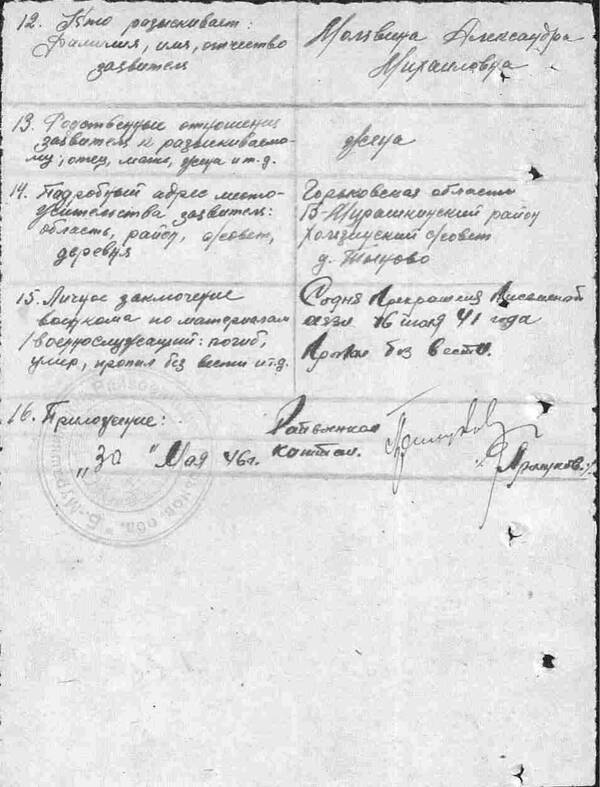 12. Кто разыскивает:
Фамилия, имя, отчество
заявителя
Молявина Александра
Михаиловна
13. Родственные отношения
заявителя к разыскиваемо-
му; отец, мать, жена и т.д.
жена
14. Подробный адрес место-
жительства заявителя:
область, район, с/совет,
деревня
Горьковская область
Б-Мурашкинский район
с/совет
д.
15. Личное заключение
военкома по материалам
/военнослужащий: погиб,
умер, пропал без вести и т.д.
Содня Прекращения Письменной
связи 16 июля 41 года
Пропал без вести.
16. Приложение:
„30 " Мая 46г.
Райвоенком
капитан.